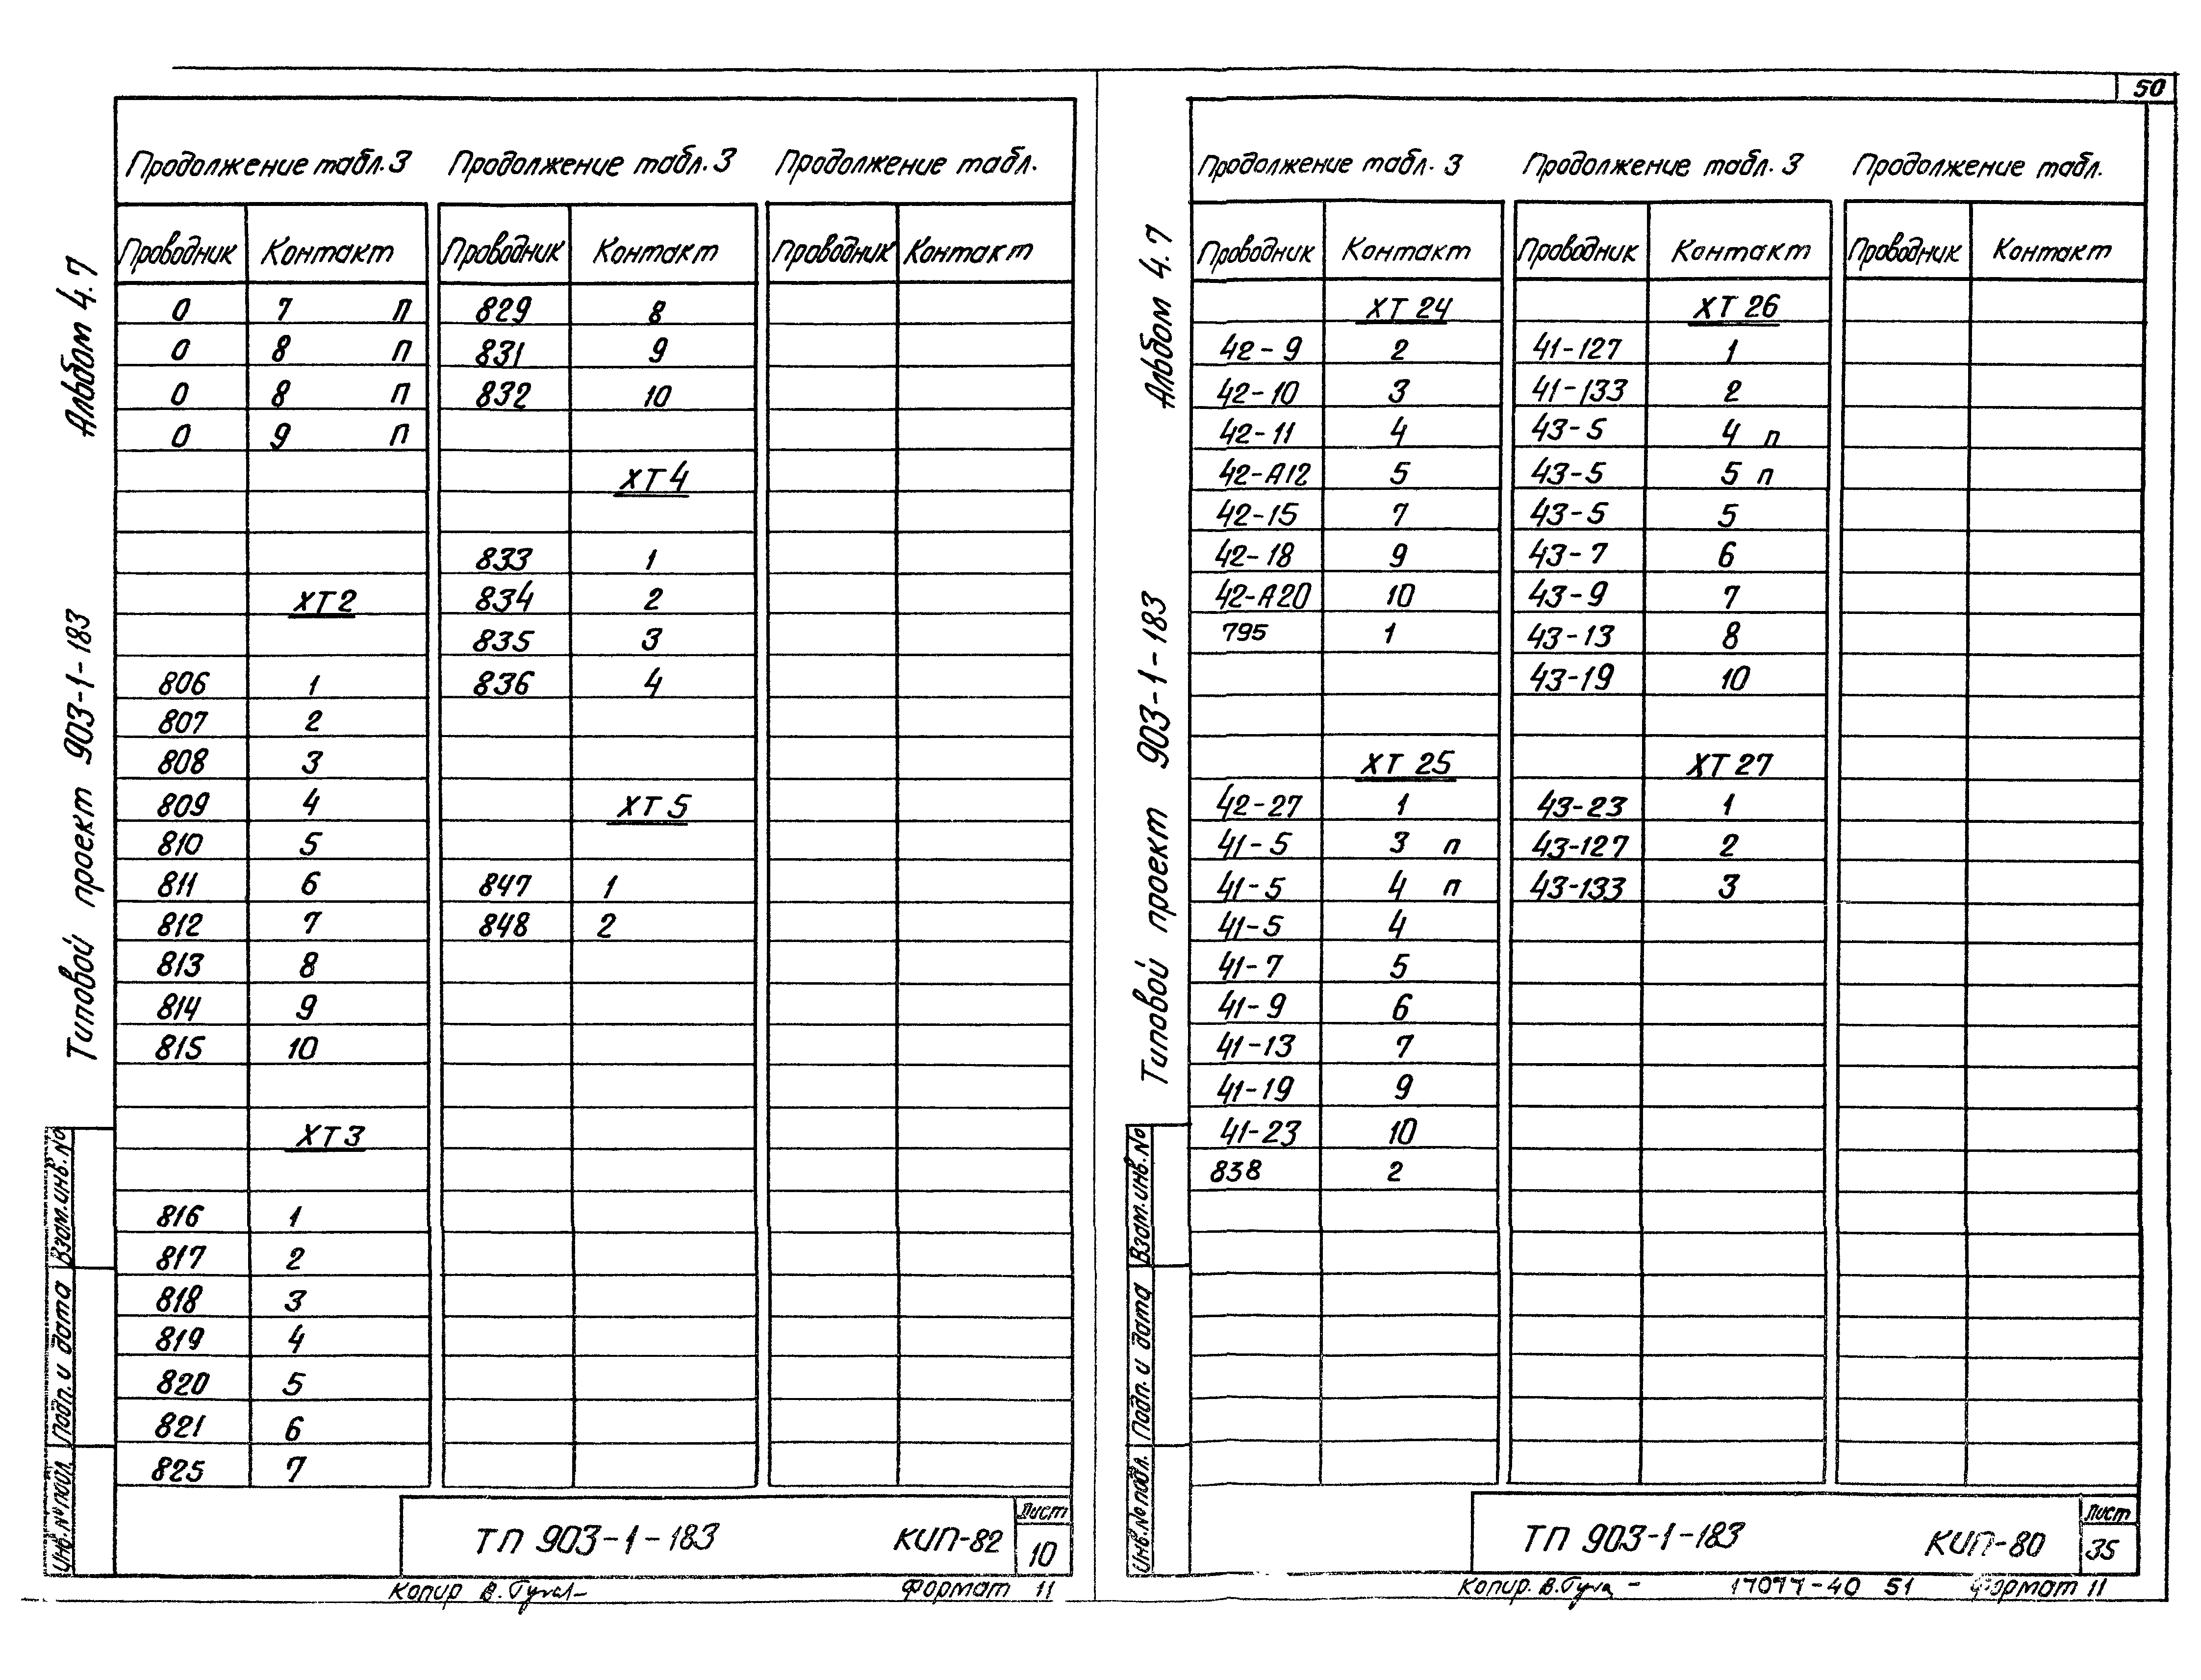 50
Альбом 4.7
Типовой проект 903-1-183
Взам.инв.№
Подп. и дата
Инв.№ подл.
Продолжение табл.3 Продолжение табл.3 Продолжение табл.
Проводник Контакт Проводник Контакт Проводник Контакт
0 7 п 829 8
0 8 п 831 9
0 8 п 832 10
0 9 п
ХТ4
833 1
ХТ2 834 2
835 3
806 1 836 4
807 2
808 3
809 4 ХТ5
810 5
811 6 847 1
812 7 848 2
813 8
814 9
815 10
ХТ3
816 1
817 2
818 3
819 4
820 5
821 6
825 7
ТП 903-1-183 КИП-82 Лист 10
Копир В. Формат 11
Альбом 4.7
Типовой проект 903-1-183
Взам.инв.№
Подп. и дата
Инв.№ подл.
Продолжение табл. 3 Продолжение табл. 3 Продолжение табл.
Проводник Контакт Проводник Контакт Проводник Контакт
ХТ 24 ХТ 26
42-9 2 41-127 1
42-10 3 41-133 2
42-11 4 43-5 4 п
42-А12 5 43-5 5 п
42-15 7 43-5 5
42-18 9 43-7 6
42-А20 10 43-9 7
795 1 43-13 8
43-19 10
ХТ 25 ХТ 27
42-27 1 43-23 1
41-5 3 п 43-127 2
41-5 4 п 43-133 3
41-5 4
41-7 5
41-9 6
41-13 7
41-19 9
41-23 10
838 2
ТП 903-1-183 КИП-80 Лист 35
Копир. В. 17077-40 51 Формат 11